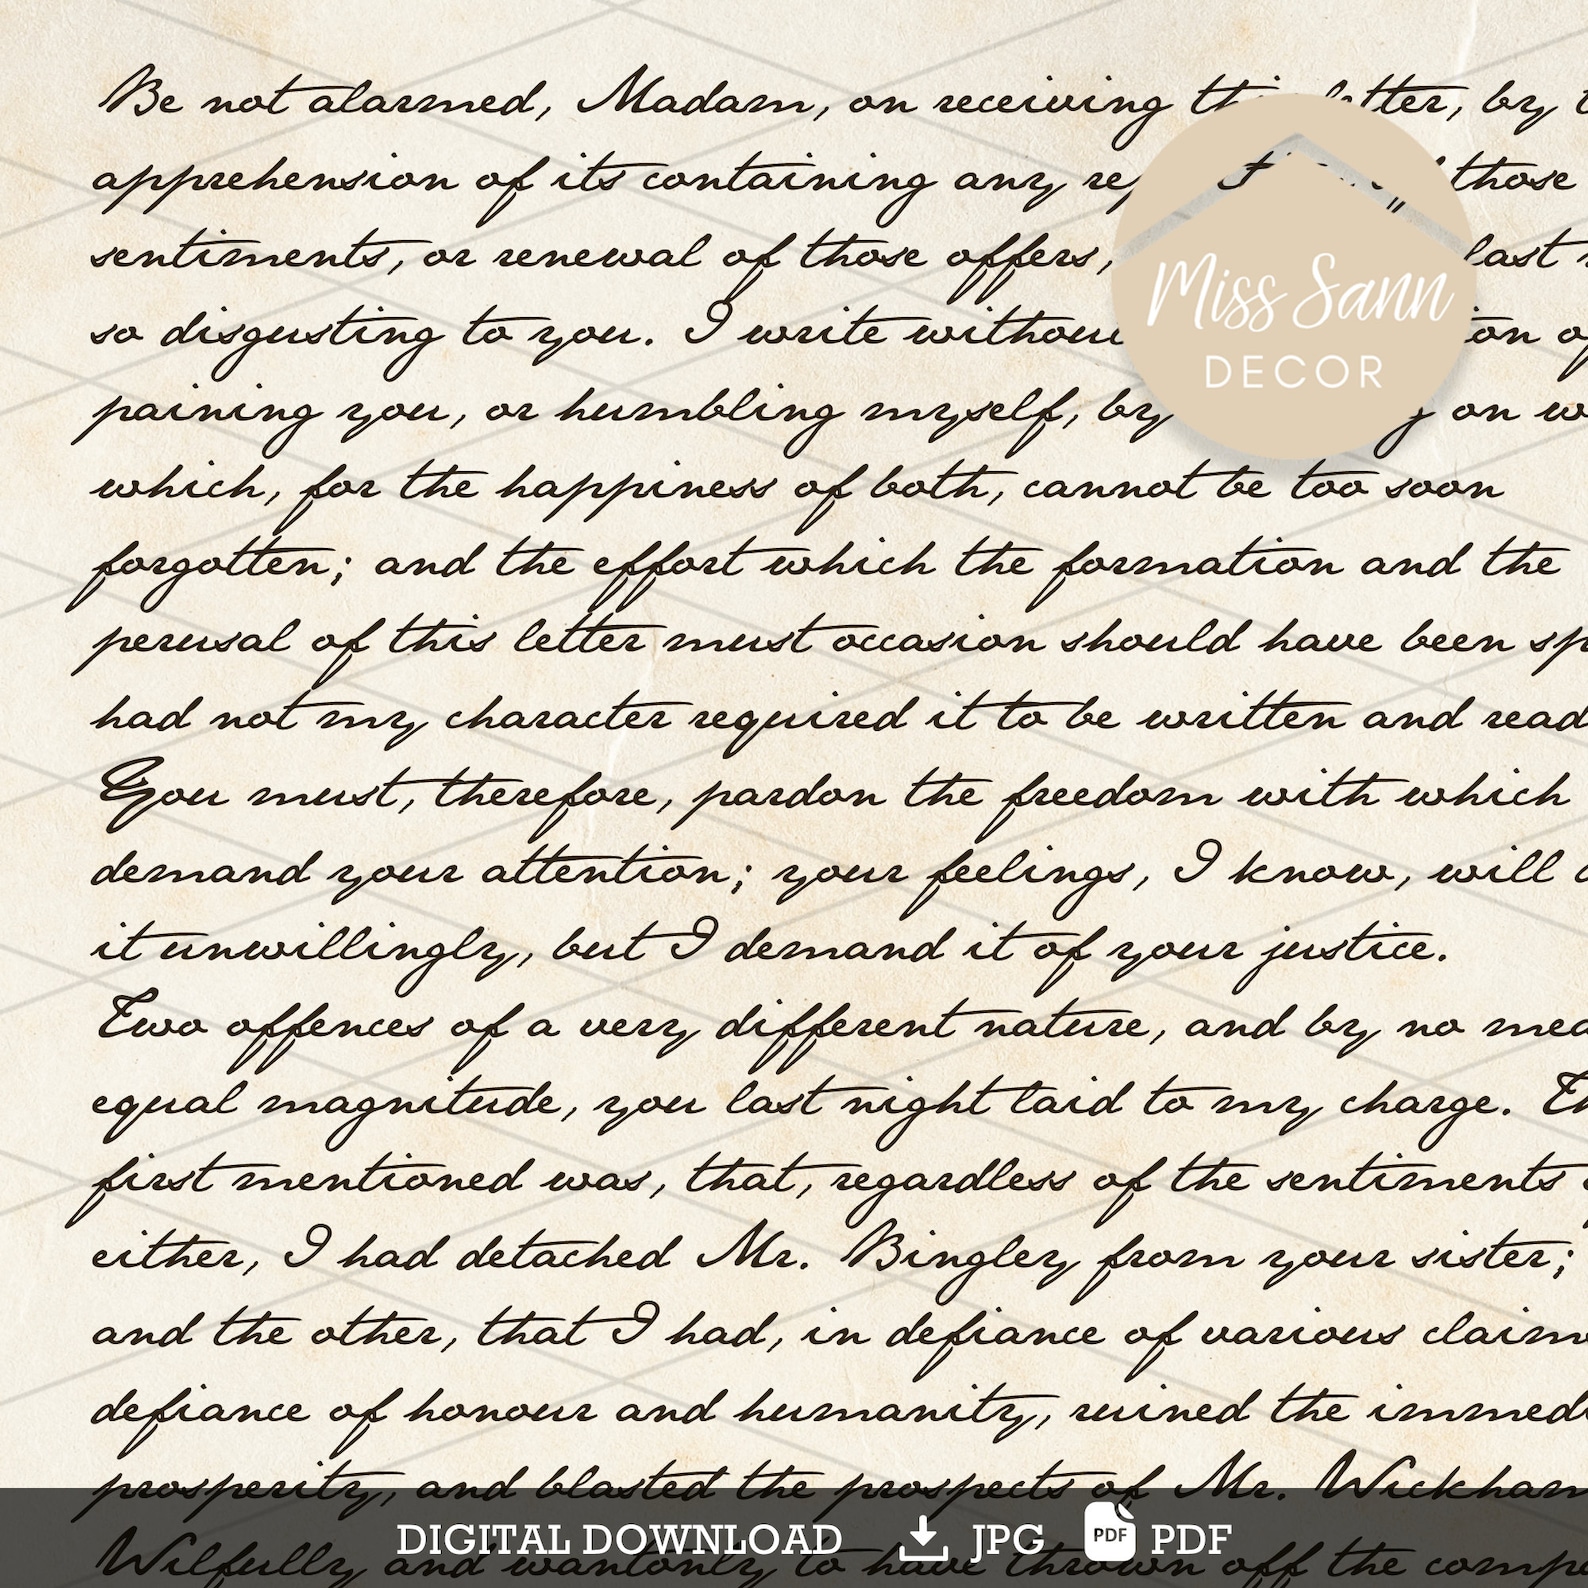 Be not alarmed, Madam, on receiving this letter, by
apprehension of its containing any those
sentiments, or renewal of those offers, last
so disgusting to you. I write without
paining you, or humbling myself, by on
which, for the happiness of both, cannot be too soon
forgotten; and the effort which the formation and the
perusal of this letter must occasion should have been
had not my character required it to be written and read
You must, therefore, pardon the freedom with which
demand your attention; your feelings, I know, will
it unwillingly, but I demand it of your justice.
Two offences of a very different nature, and by no
equal magnitude, you last night laid to my charge.
first mentioned was, that, regardless of the sentiments
either, I had detached Mr. Bingley from your sister;
and the other, that I had, in defiance of various
defiance of honour and humanity, ruined the
prosperity, and blasted the prospects of Mr. Wickham
Wilfully and wantonly to have thrown off the
Miss Sann
DECOR
DIGITAL DOWNLOAD JPG PDF PDF